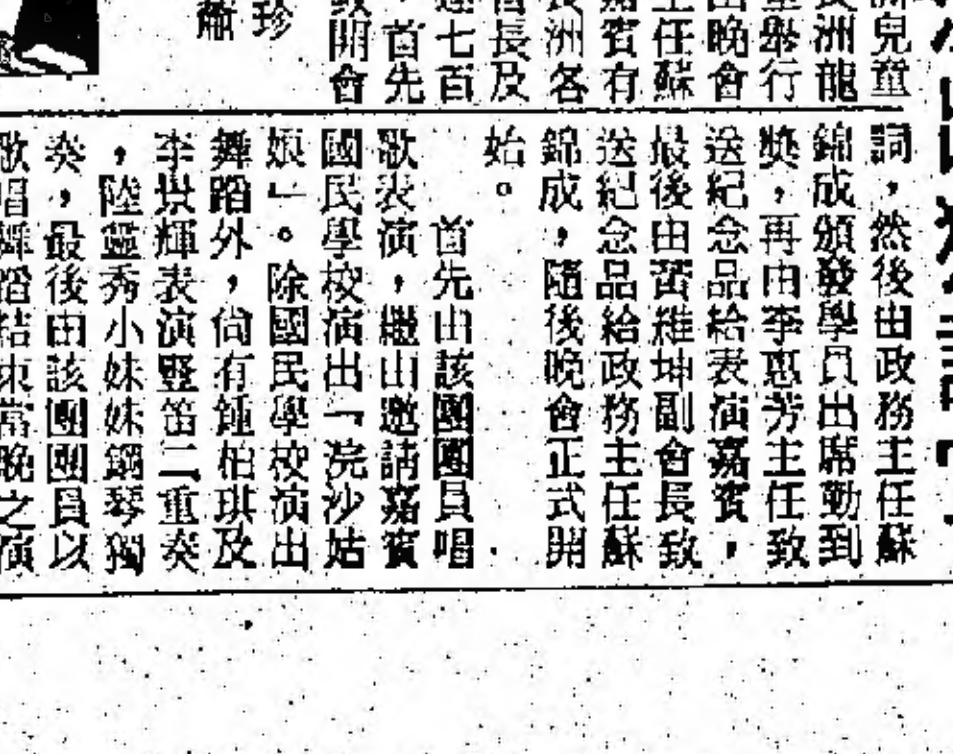 兒童
洲龍
舉行
晚會
任蘇
賓有
洲各
長及
七百
首先
開會
珍
詞，然後由政務主任蘇
錦成頒發學員出席勤到
獎，再由李惠芳主任致
送紀念品給表演嘉賓，
最後由維坤副會長致
送紀念品給政務主任蘇
錦成，隨後晚會正式開
始。
首先由該團團員唱
歌表演，繼由邀請嘉賓
國民學校演出「浣沙姑
娘」。除國民學校演出
舞蹈外，尚有鍾柏琪及
李景輝表演豎笛二重奏
，陸靈秀小妹妹鋼琴獨
奏，最後由該團團員以
歌唱舞蹈結束當晚之演